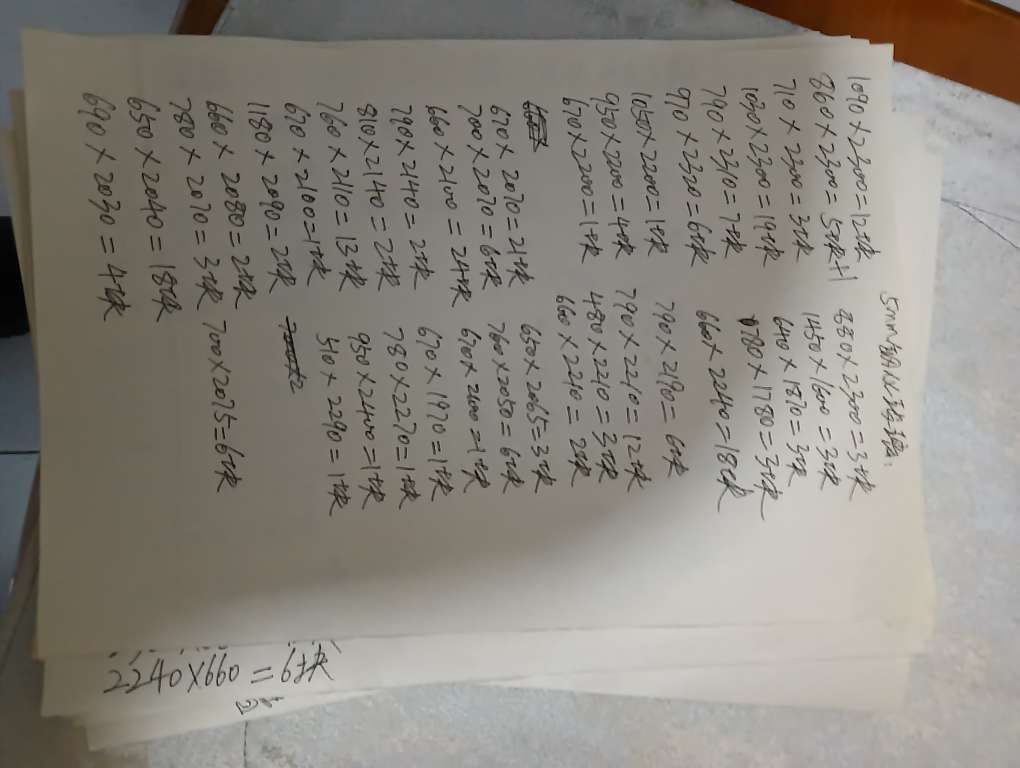 5mm钢化玻璃:
1090×2300=12块
860×2300=5块+1
710×2300=3块
1030×2300=19块
790×2310=7块
970×2320=6块
1050×2200=1块
950×2200=4块
670×2200=1块
670×2070=21块
700×2070=6块
660×2100=24块
790×2140=2块
810×2140=2块
760×2110=13块
670×2100=1块
1180×2090=2块
660×2080=2块
780×2070=3块
650×2040=18块
690×2030=4块
880×2300=3块
1450×1600=3块
640×1870=3块
780×1780=3块
660×2240=18块
790×2190=6块
790×2210=12块
480×2210=3块
660×2240=2块
650×2065=3块
760×2050=6块
670×2100=1块
670×1970=1块
780×2270=1块
950×2400=1块
510×2290=1块
700×2075=6块
2240×660=6块